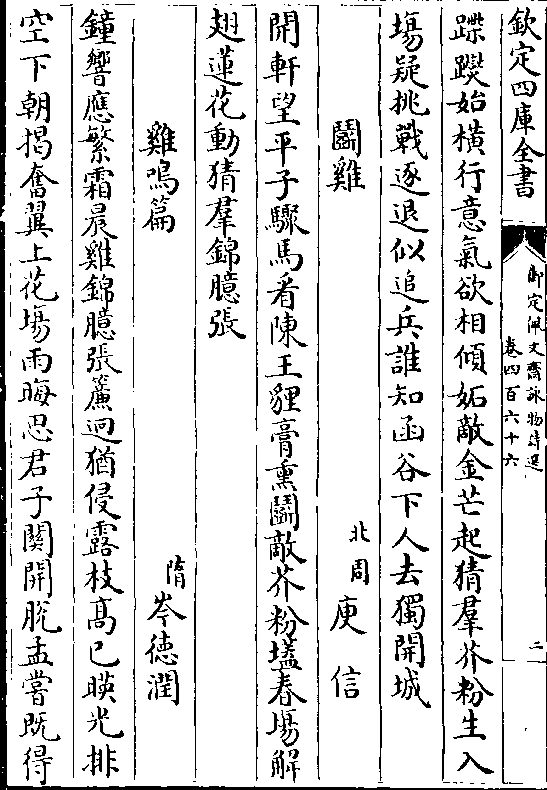 欽定四庫全書
御定佩文齋詠物詩選
卷四百六十六
二
蹀躞始橫行意氣欲相傾妬敵金芒起猜羣芥粉生入
塲疑挑戰逐退似追兵誰知函谷下人去獨開城
鬬雞
北周 庾信
開軒望平子驟馬看陳王貍膏熏鬬敵芥粉壒春塲解
翅蓮花動猜羣錦臆張
雞鳴篇
隋 岑德潤
鐘響應繁霜晨雞錦臆張簾迥猶侵露枝髙已映光排
空下朝揭奮翼上花塲雨晦思君子關開脫孟嘗既得